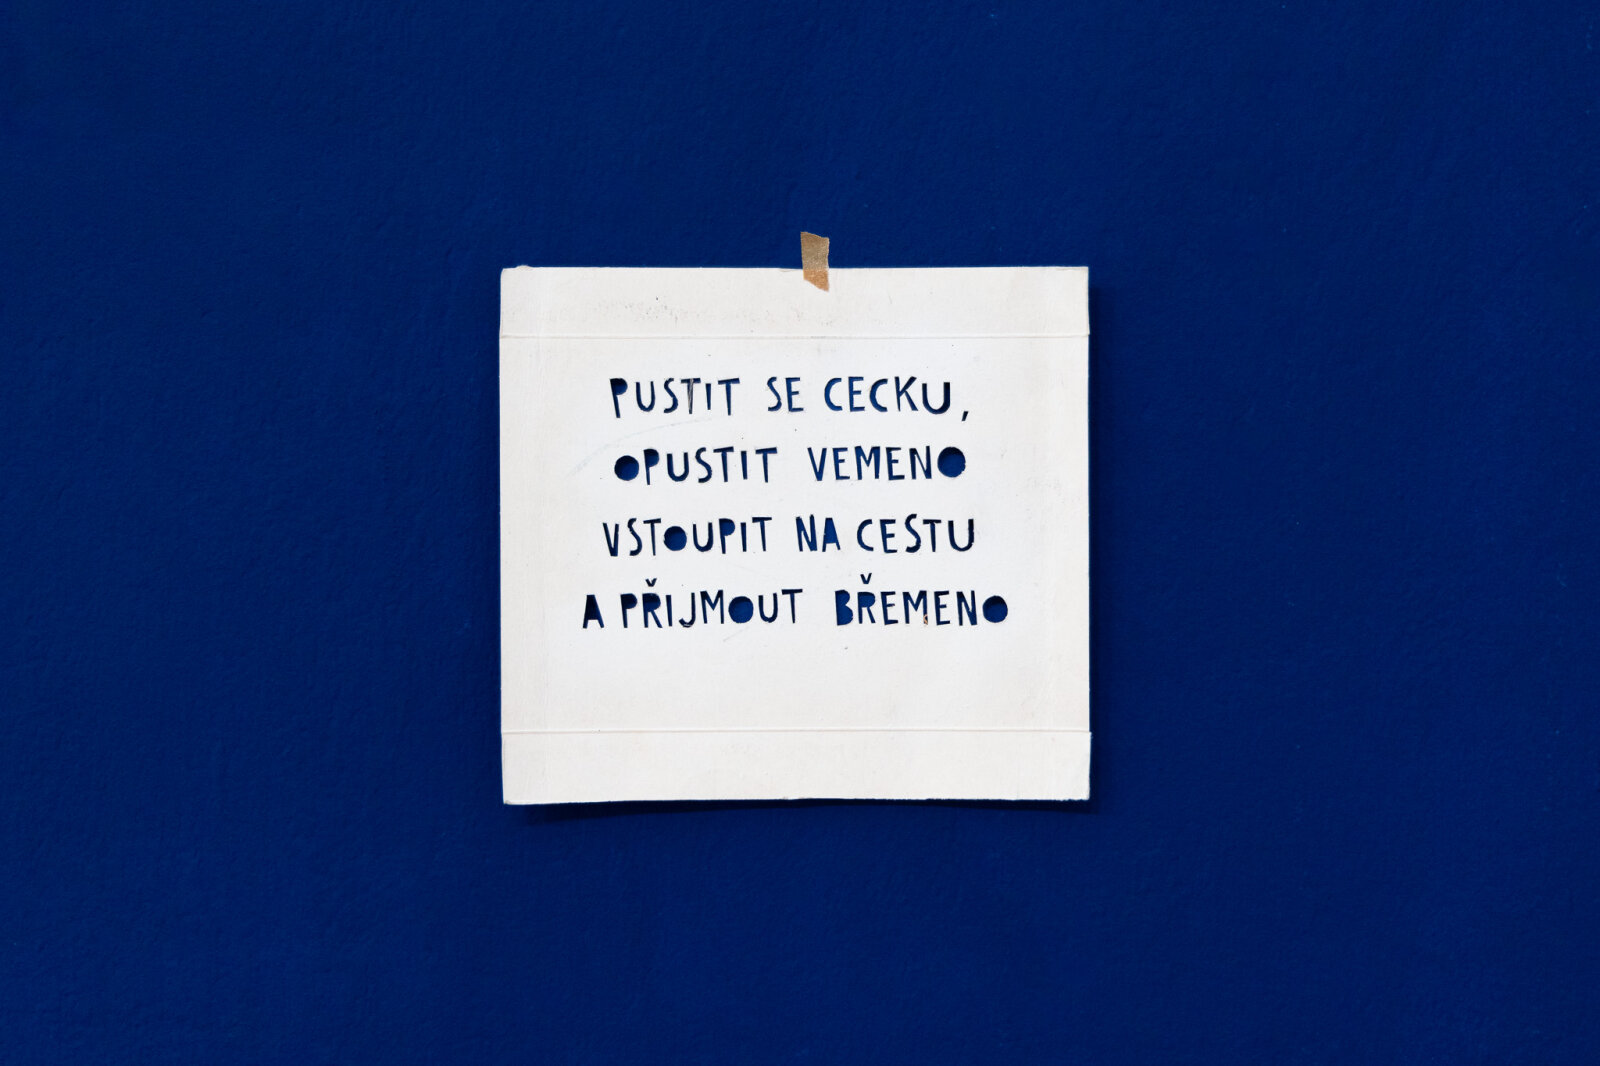 PUSTIT SE CECKU,
OPUSTIT VEMENO
VSTOUPIT NA CESTU
A PŘIJMOUT BŘEMENO